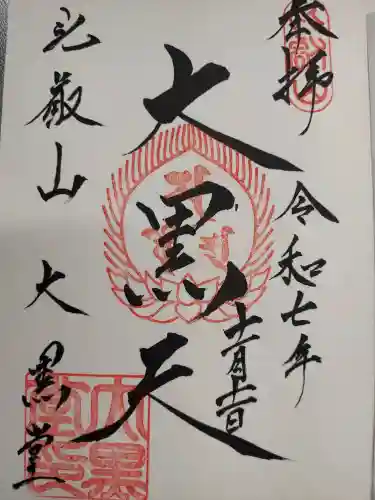 奉拝
令和七年
十一月十一日
大黒天
比叡山 大黒堂